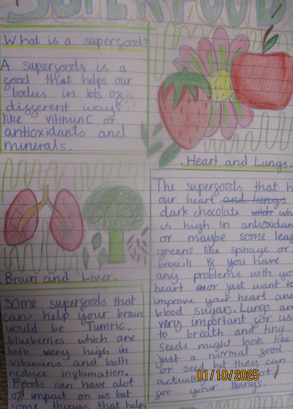 SUPERFOOD
What is a superfood?
A superfoods is a
food that helps our
bodies in lots of
different ways
like vitiminC or
antioxidants and
minerals.
Heart and Lungs.
The superfoods that h
our heart and lungs
dark chocolate wich wh
is high in antioxidan
or maybe some leaf
greens like spinage or
brocili if you have
any problems with yo
heart or just want to
improve your heart and
blood sugars. Lungs ar
very important for us
to breath and tiny
seeds might look like
just a normal seed
or seed but they can
actually
for your lungs.
Brain and Liver.
Some superfoods that
can help your brain
would be Tumric,
bluberries which are
both very high in
vitamins and both
reduce inflmation.
Foods can have alot
of impact on us but
some things that help
01/10/2025